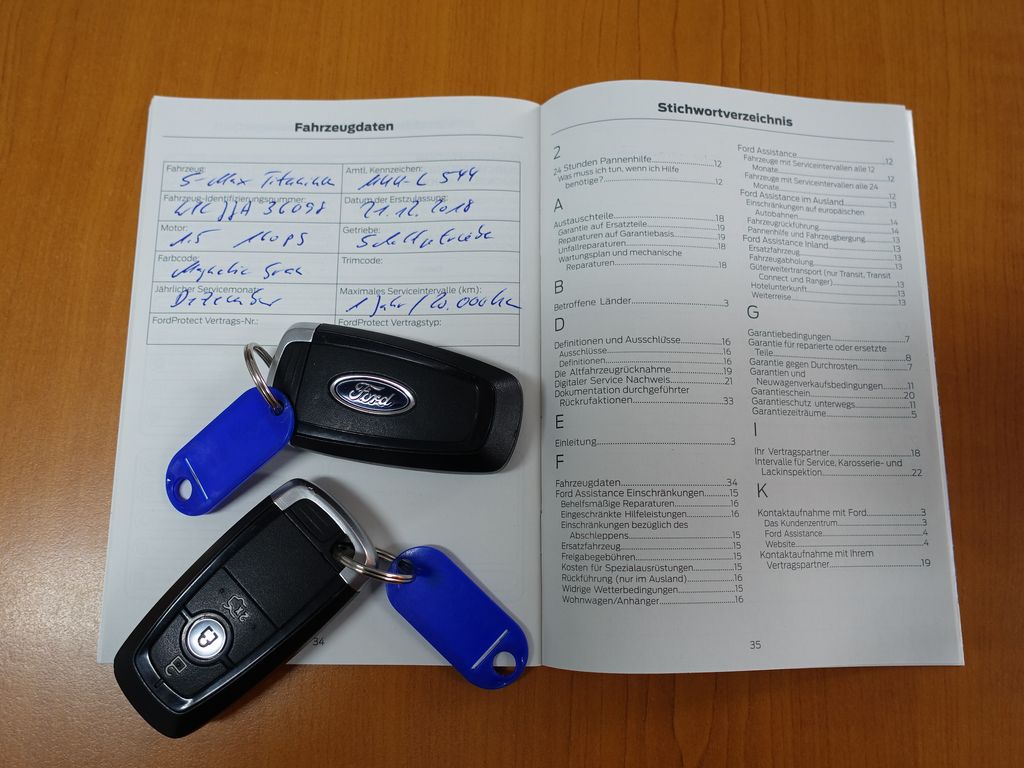 Fahrzeugdaten
Fahrzeug: S-Max Titanium
Amtl. Kennzeichen:
Fahrzeug-Identifizierungsnummer:
Datum der Erstzulassung: 21.12.2018
Motor: 1.5 160 PS
Getriebe: Schaltgetriebe
Farbcode: Magnetic Grau
Trimcode:
Jährlicher Servicemonat: Dezember
Maximales Serviceintervalle (km): 1 Jahr / 20.000 km
FordProtect Vertrags-Nr.:
FordProtect Vertragstyp:
Ford
2x
34
Stichwortverzeichnis
2
24 Stunden Pannenhilfe 12
Was muss ich tun, wenn ich Hilfe
benötige? 12
A
Austauschteile 18
Garantie auf Ersatzteile 19
Reparaturen auf Garantiebasis 19
Unfallreparaturen 18
Wartungsplan und mechanische
Reparaturen 18
B
Betroffene Länder 3
D
Definitionen und Ausschlüsse 16
Ausschlüsse 16
Definitionen 16
Die Altfahrzeugrücknahme 19
Digitaler Service Nachweis 21
Dokumentation durchgeführter
Rückrufaktionen 33
E
Einleitung 3
F
Fahrzeugdaten 34
Ford Assistance Einschränkungen 15
Behelfsmäßige Reparaturen 16
Eingeschränkte Hilfeleistungen 16
Einschränkungen bezüglich des
Abschleppens 15
Ersatzfahrzeug 15
Freigabegebühren 15
Kosten für Spezialausrüstungen 15
Rückführung (nur im Ausland) 16
Widrige Wetterbedingungen 15
Wohnwagen/Anhänger 16
Ford Assistance 12
Fahrzeuge mit Serviceintervallen alle 12
Monate 12
Fahrzeuge mit Serviceintervallen alle 24
Monate 12
Ford Assistance im Ausland 13
Einschränkungen auf europäischen
Autobahnen
Fahrzeugrückführung 14
Pannenhilfe und Fahrzeugbergung 13
Ford Assistance Inland 13
Ersatzfahrzeug 13
Fahrzeugabholung 13
Güterweitertransport (nur Transit, Transit
Connect und Ranger) 13
Hotelunterkunft 13
Weiterreise 13
G
Garantiebedingungen 7
Garantie für reparierte oder ersetzte
Teile 8
Garantie gegen Durchrosten 7
Garantien und
Neuwagenverkaufsbedingungen 11
Garantieschein 20
Garantieschutz unterwegs 11
Garantiezeiträume 5
I
Ihr Vertragspartner 18
Intervalle für Service, Karosserie- und
Lackinspektion 22
K
Kontaktaufnahme mit Ford 3
Das Kundenzentrum 3
Ford Assistance 4
Website 4
Kontaktaufnahme mit Ihrem
Vertragspartner 19
35